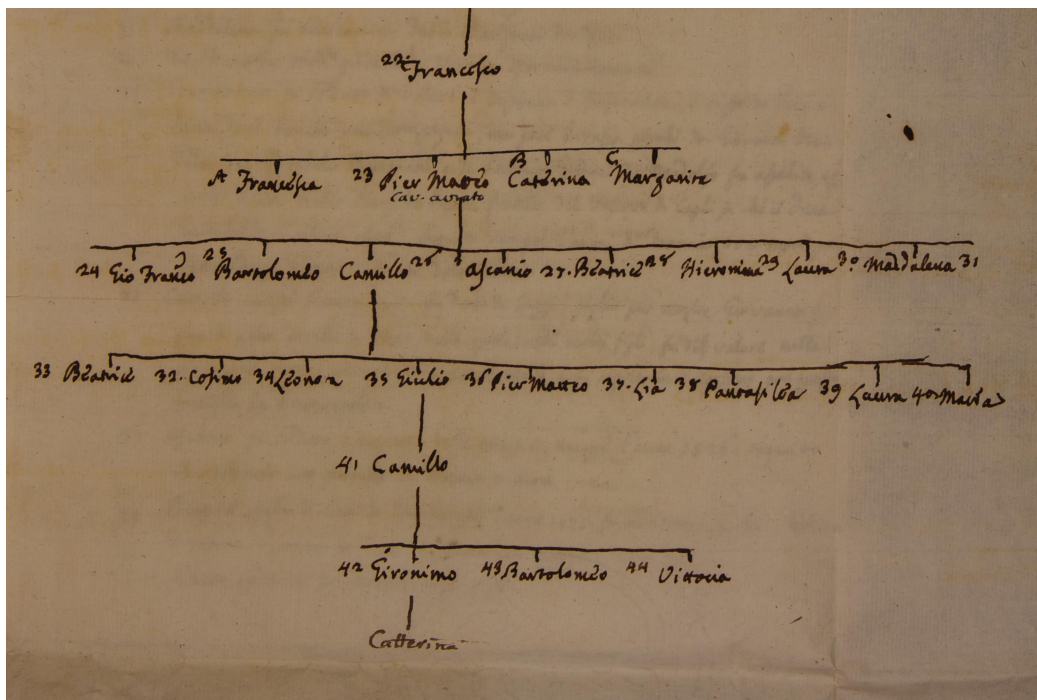 22 Francesco
A Francesca 23 Pier Matteo B Caterina C Margarita
Cav. aurato
24 Gio Franco 25 Bartolomeo Camillo 26 Ascanio 27. Beatrice 28 Hieronima 29 Laura 30 Maddalena 31
33 Beatrice 32. Cosimo 34 Leonora 35 Giulio 36 Pier Matteo 37. Lia 38 Pantasilea 39 Laura 40 Maria
41 Camillo
42 Gironimo 43 Bartolomeo 44 Vittoria
Catterina